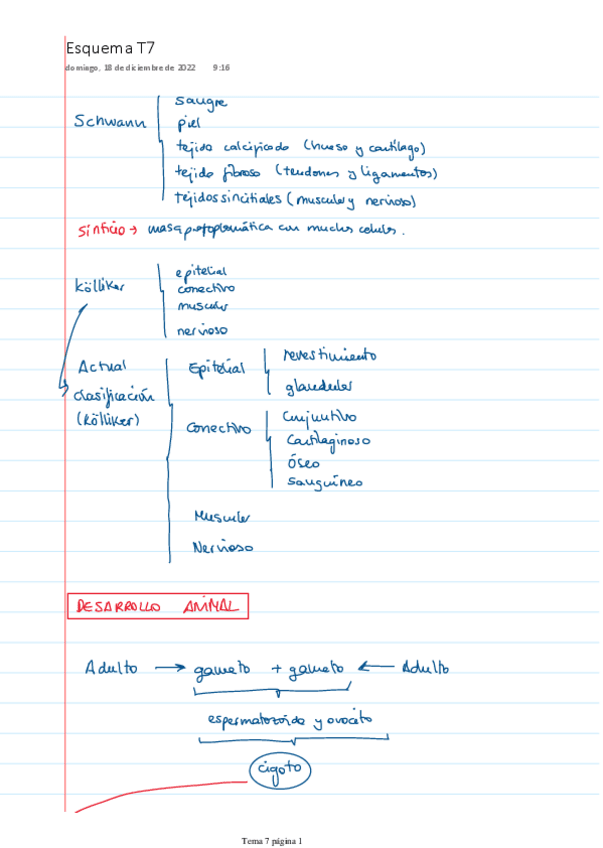 Esquema T7
domingo, 18 de diciembre de 2022 9:16
Schwann
sangre
piel
tejido calcificado (hueso y cartílago)
tejido fibroso (tendones y ligamentos)
tejidos sincitiales (muscular y nervioso)
Sinticio → masa protoplasmática con muchas celulas.
Kölliker
epitelial
conectivo
muscular
nervioso
Actual
clasificación
(Kölliker)
Epitelial
revestimiento
glandular
Conectivo
Conjuntivo
Cartilaginoso
Óseo
Sanguíneo
Muscular
Nervioso
DESARROLLO ANIMAL
Adulto → gameto + gameto ← Adulto
espermatozoide y ovocito
cigoto
Tema 7 página 1